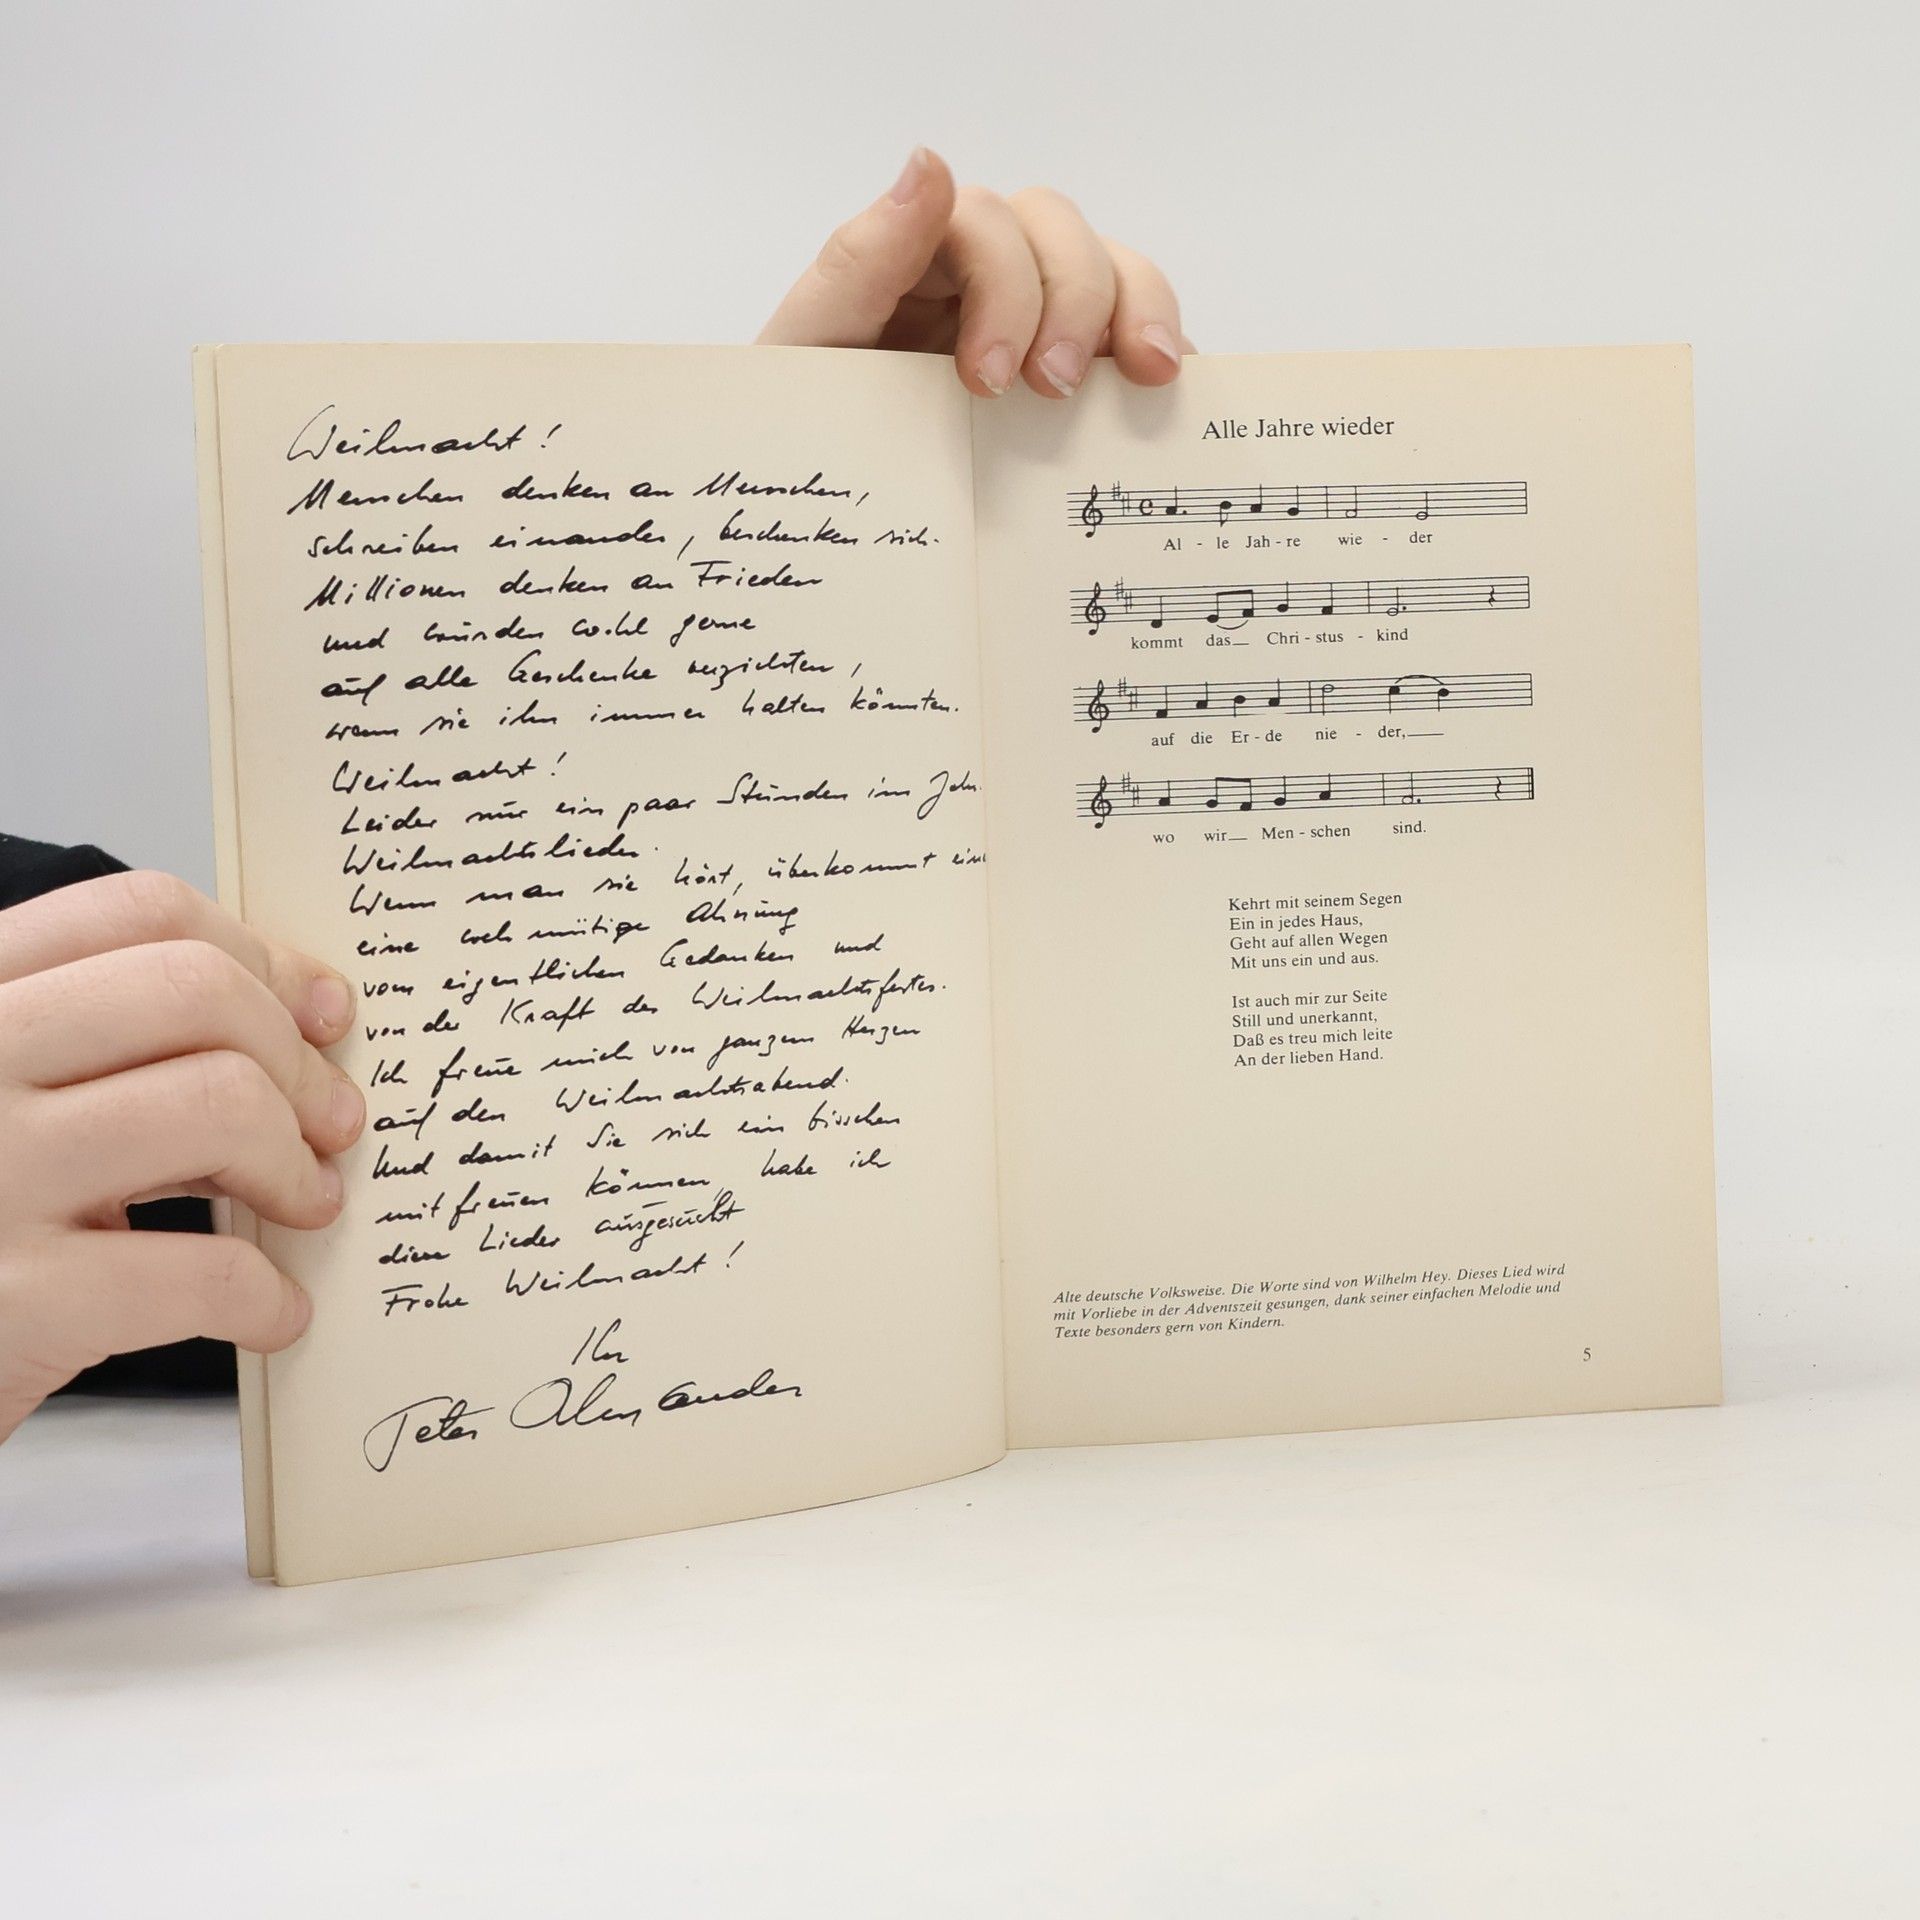 Weihnacht!
Menschen denken an Menschen,
schreiben einander, beschenken sich.
Millionen denken an Frieden
und würden wohl gerne
auf alle Geschenke verzichten,
wenn sie ihn immer halten könnten.
Weihnacht!
Leider nur ein paar Stunden im
Weihnachtslieder.
Wenn man sie hört, überkommt
eine wehmütige Ahnung
vom eigentlichen Gedanken und
von der Kraft des Weihnachtsfestes.
Ich freue mich von ganzem Herzen
auf den Weihnachtsabend.
Und damit Sie sich ein bisschen
mitfreuen können, habe ich
diese Lieder ausgesucht
Frohe Weihnacht!
Ihr
Peter Alexander
Alle Jahre wieder
Al - le Jah - re wie - der
kommt das Chri - stus - kind
auf die Er - de nie - der,
wo wir Men - schen sind.
Kehrt mit seinem Segen
Ein in jedes Haus,
Geht auf allen Wegen
Mit uns ein und aus.
Ist auch mir zur Seite
Still und unerkannt,
Daß es treu mich leite
An der lieben Hand.
Alte deutsche Volksweise. Die Worte sind von Wilhelm Hey. Dieses Lied wird
mit Vorliebe in der Adventszeit gesungen, dank seiner einfachen Melodie und
Texte besonders gern von Kindern.
5